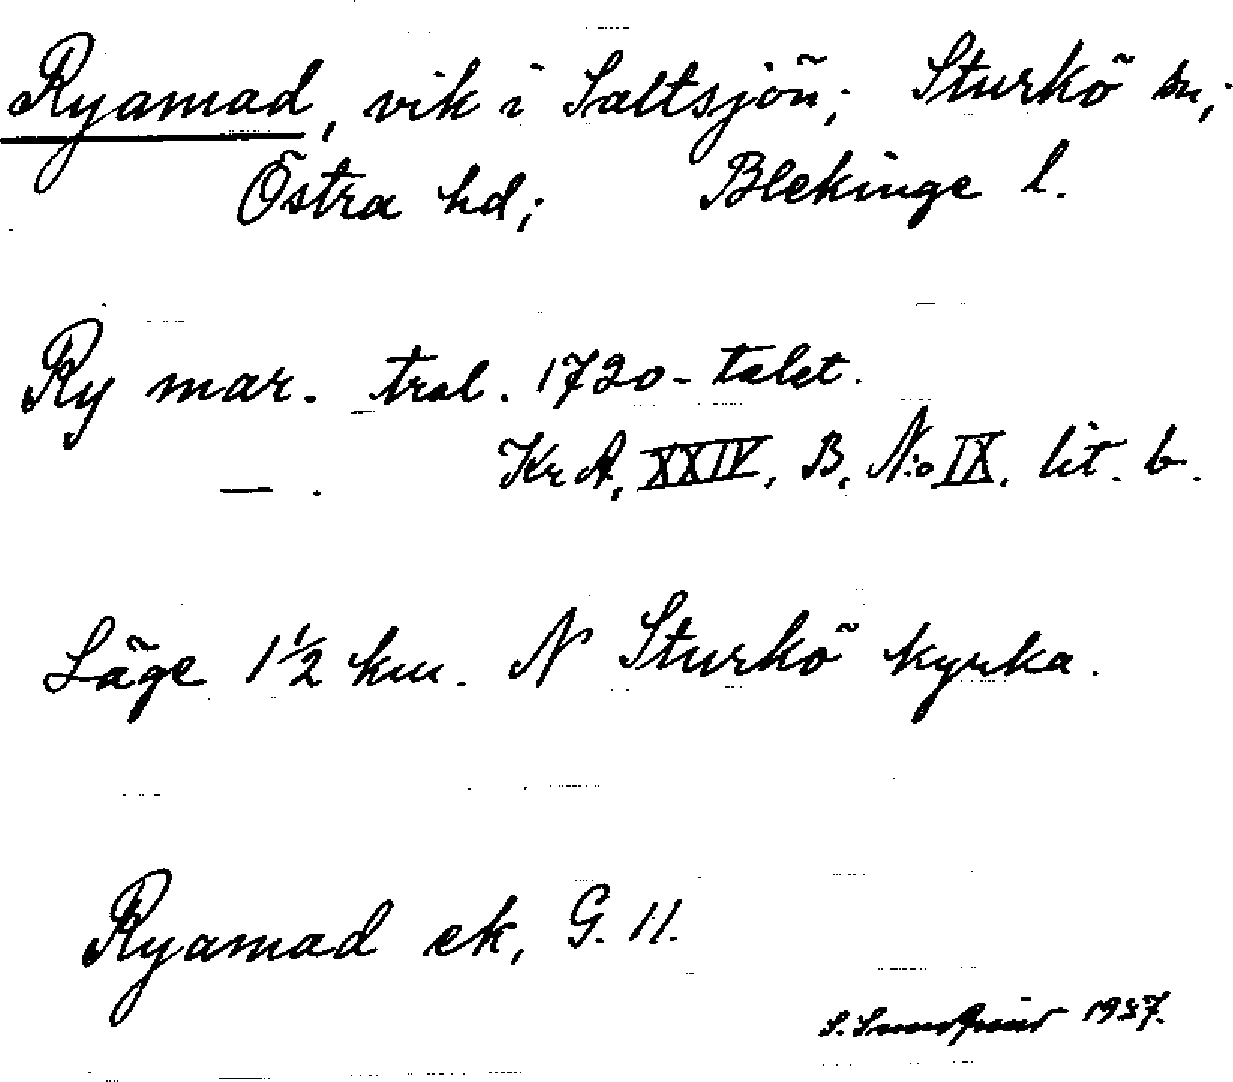 Ryamad, vik i Saltsjön; Sturkö sn;
Östra hd; Blekinge l.
Ry mar. tral. 1720-talet.
— . Kr A, XXIV, B, N:o IX, lit. b.
Läge 1 1/2 km. N Sturkö kyrka.
Ryamad ek, G. 11.
S. 1937.